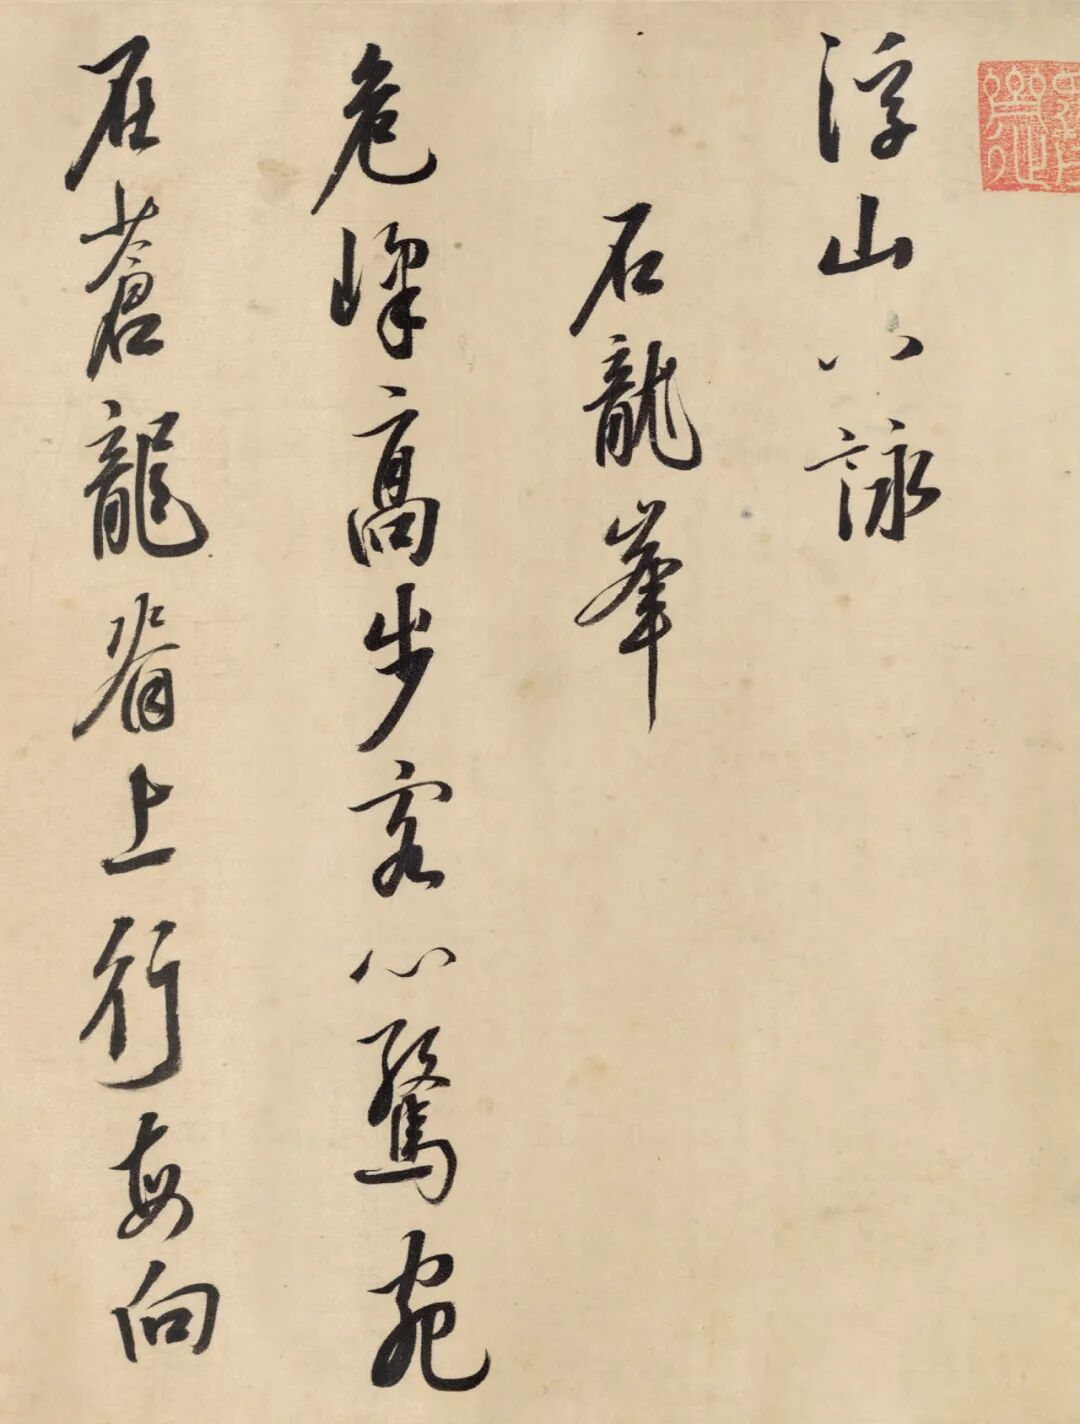 浮山八詠
石龍峯
危峰高步客心驚宛
在蒼龍脊上行每向